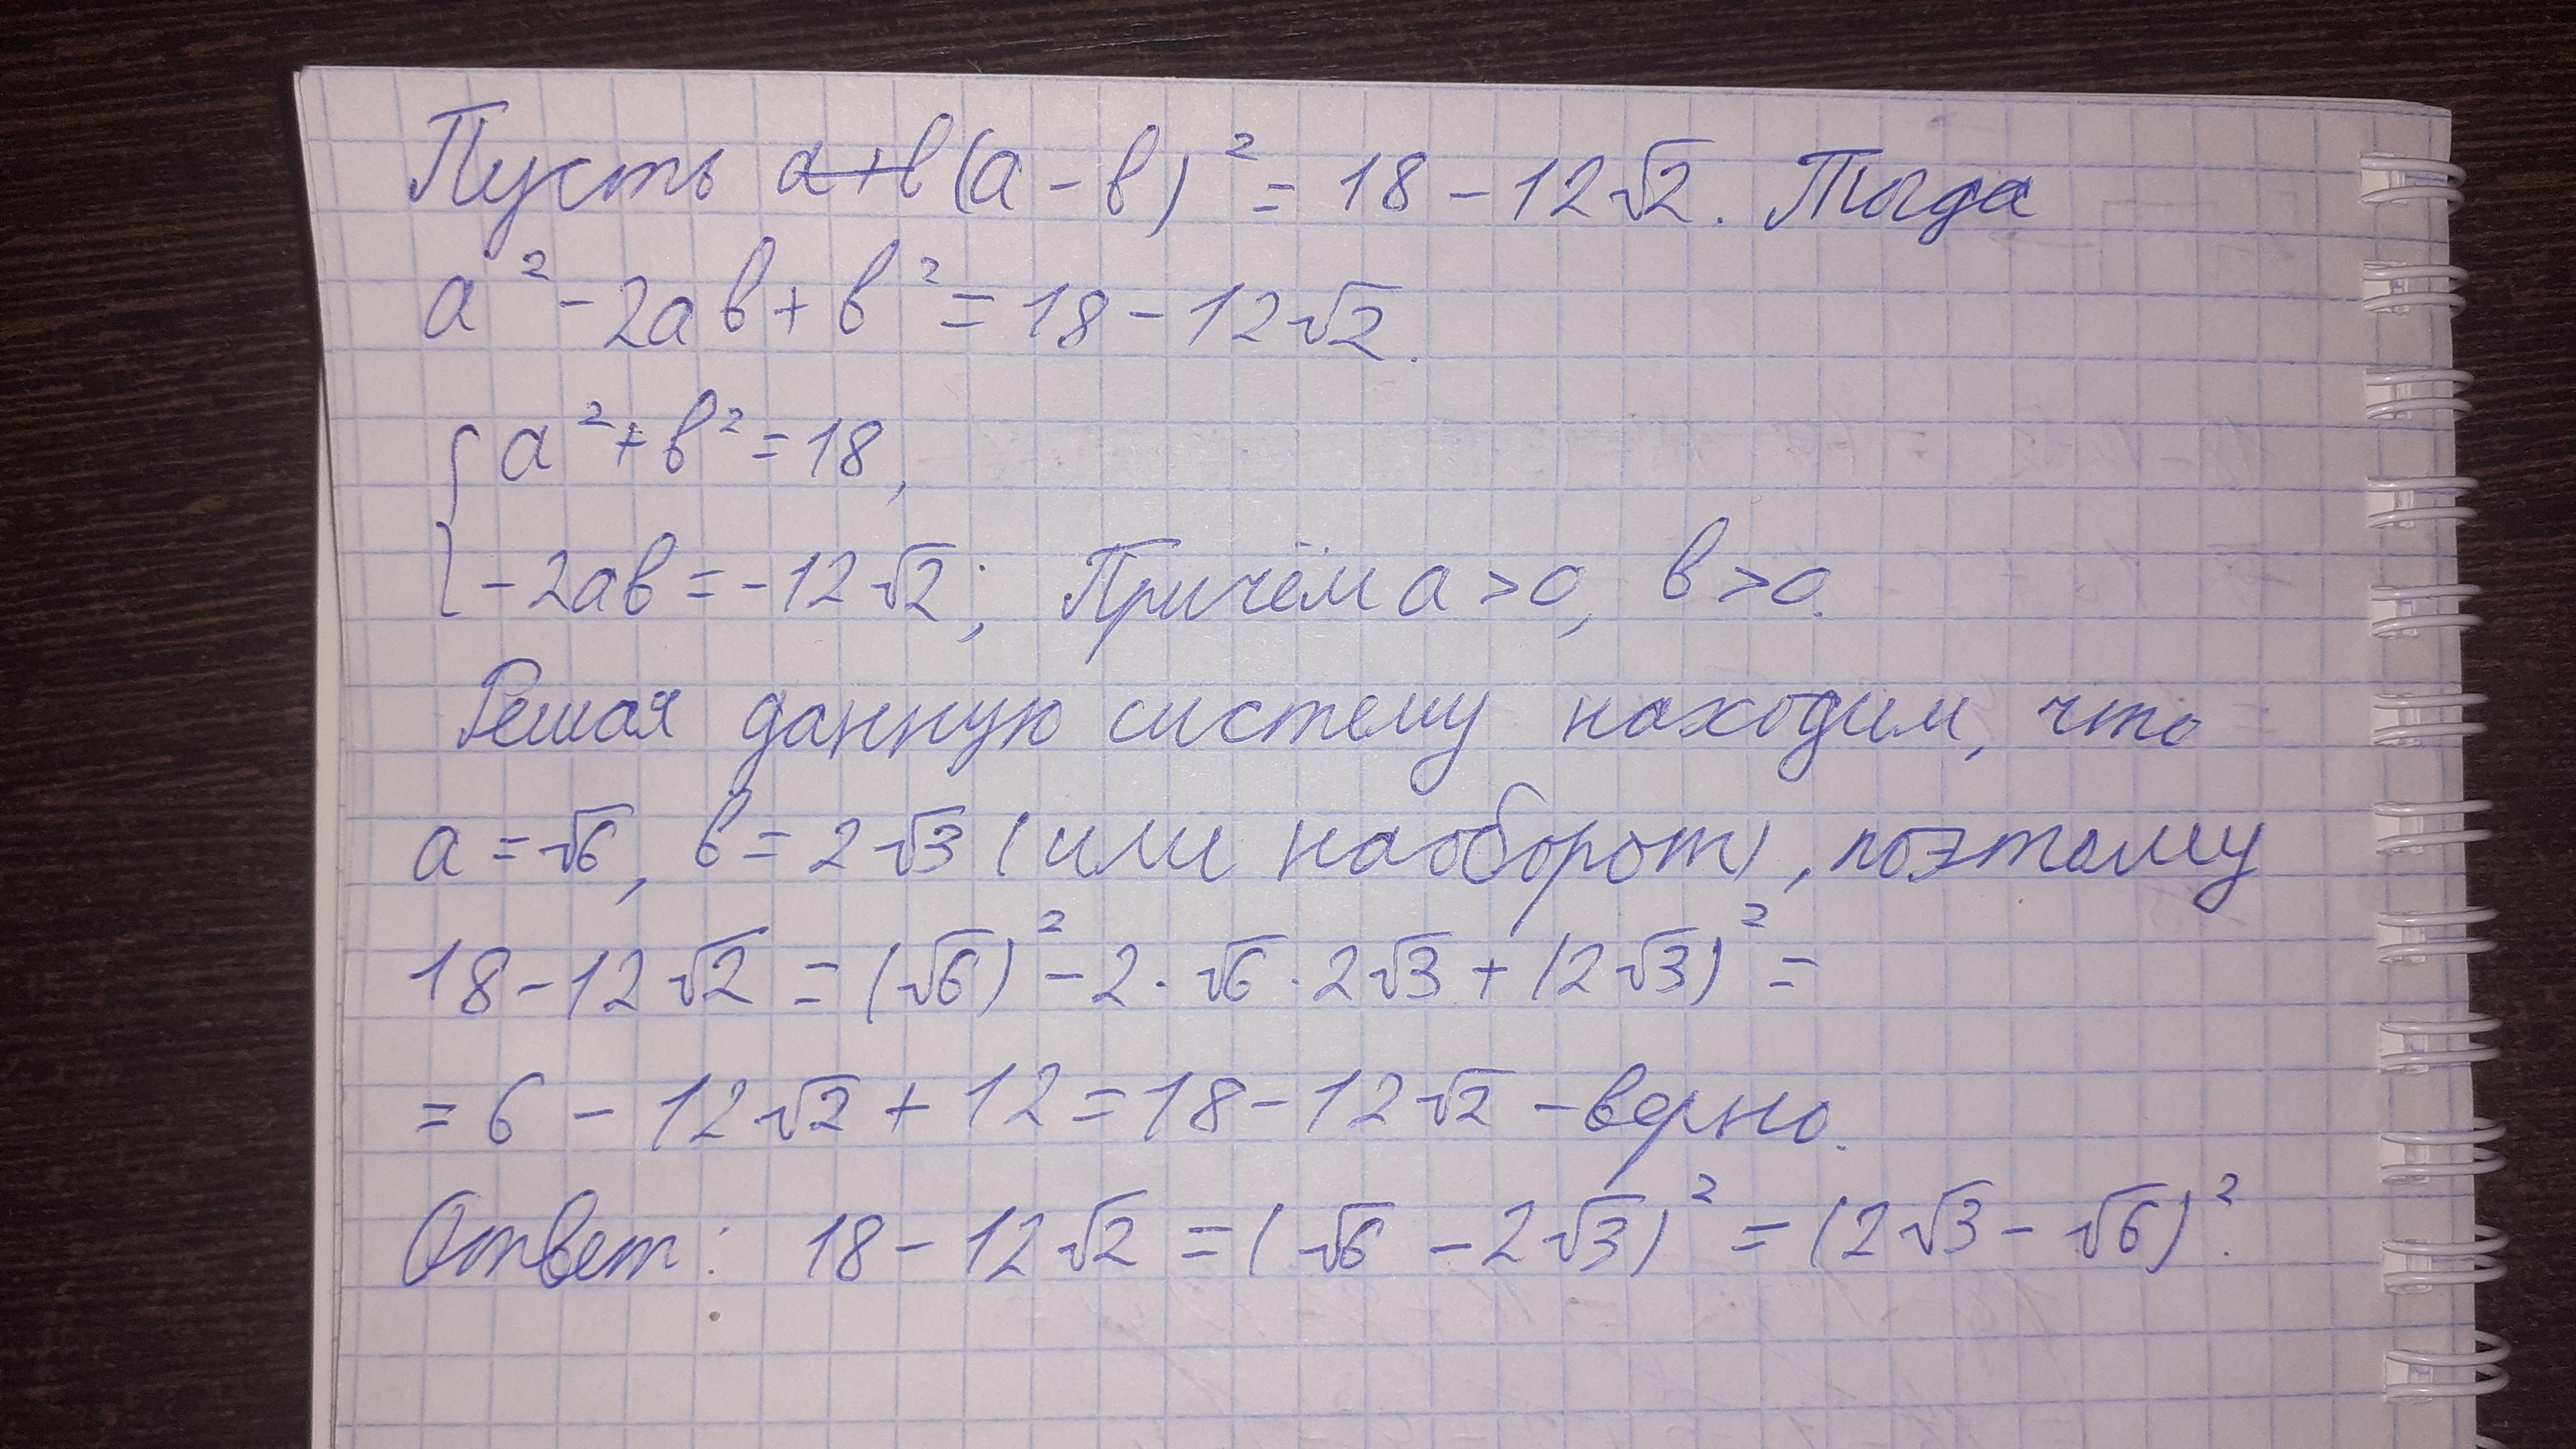 Пусть a+b (a-b)² = 18 - 12√2. Тогда
a² - 2ab + b² = 18 - 12√2.
{ a² + b² = 18,
-2ab = -12√2; Причём a > 0, b > 0.
Решая данную систему находим, что
a = √6, b = 2√3 (или наоборот), поэтому
18 - 12√2 = (√6)² - 2 · √6 · 2√3 + (2√3)² =
= 6 - 12√2 + 12 = 18 - 12√2 - верно.
Ответ: 18 - 12√2 = (√6 - 2√3)² = (2√3 - √6)².